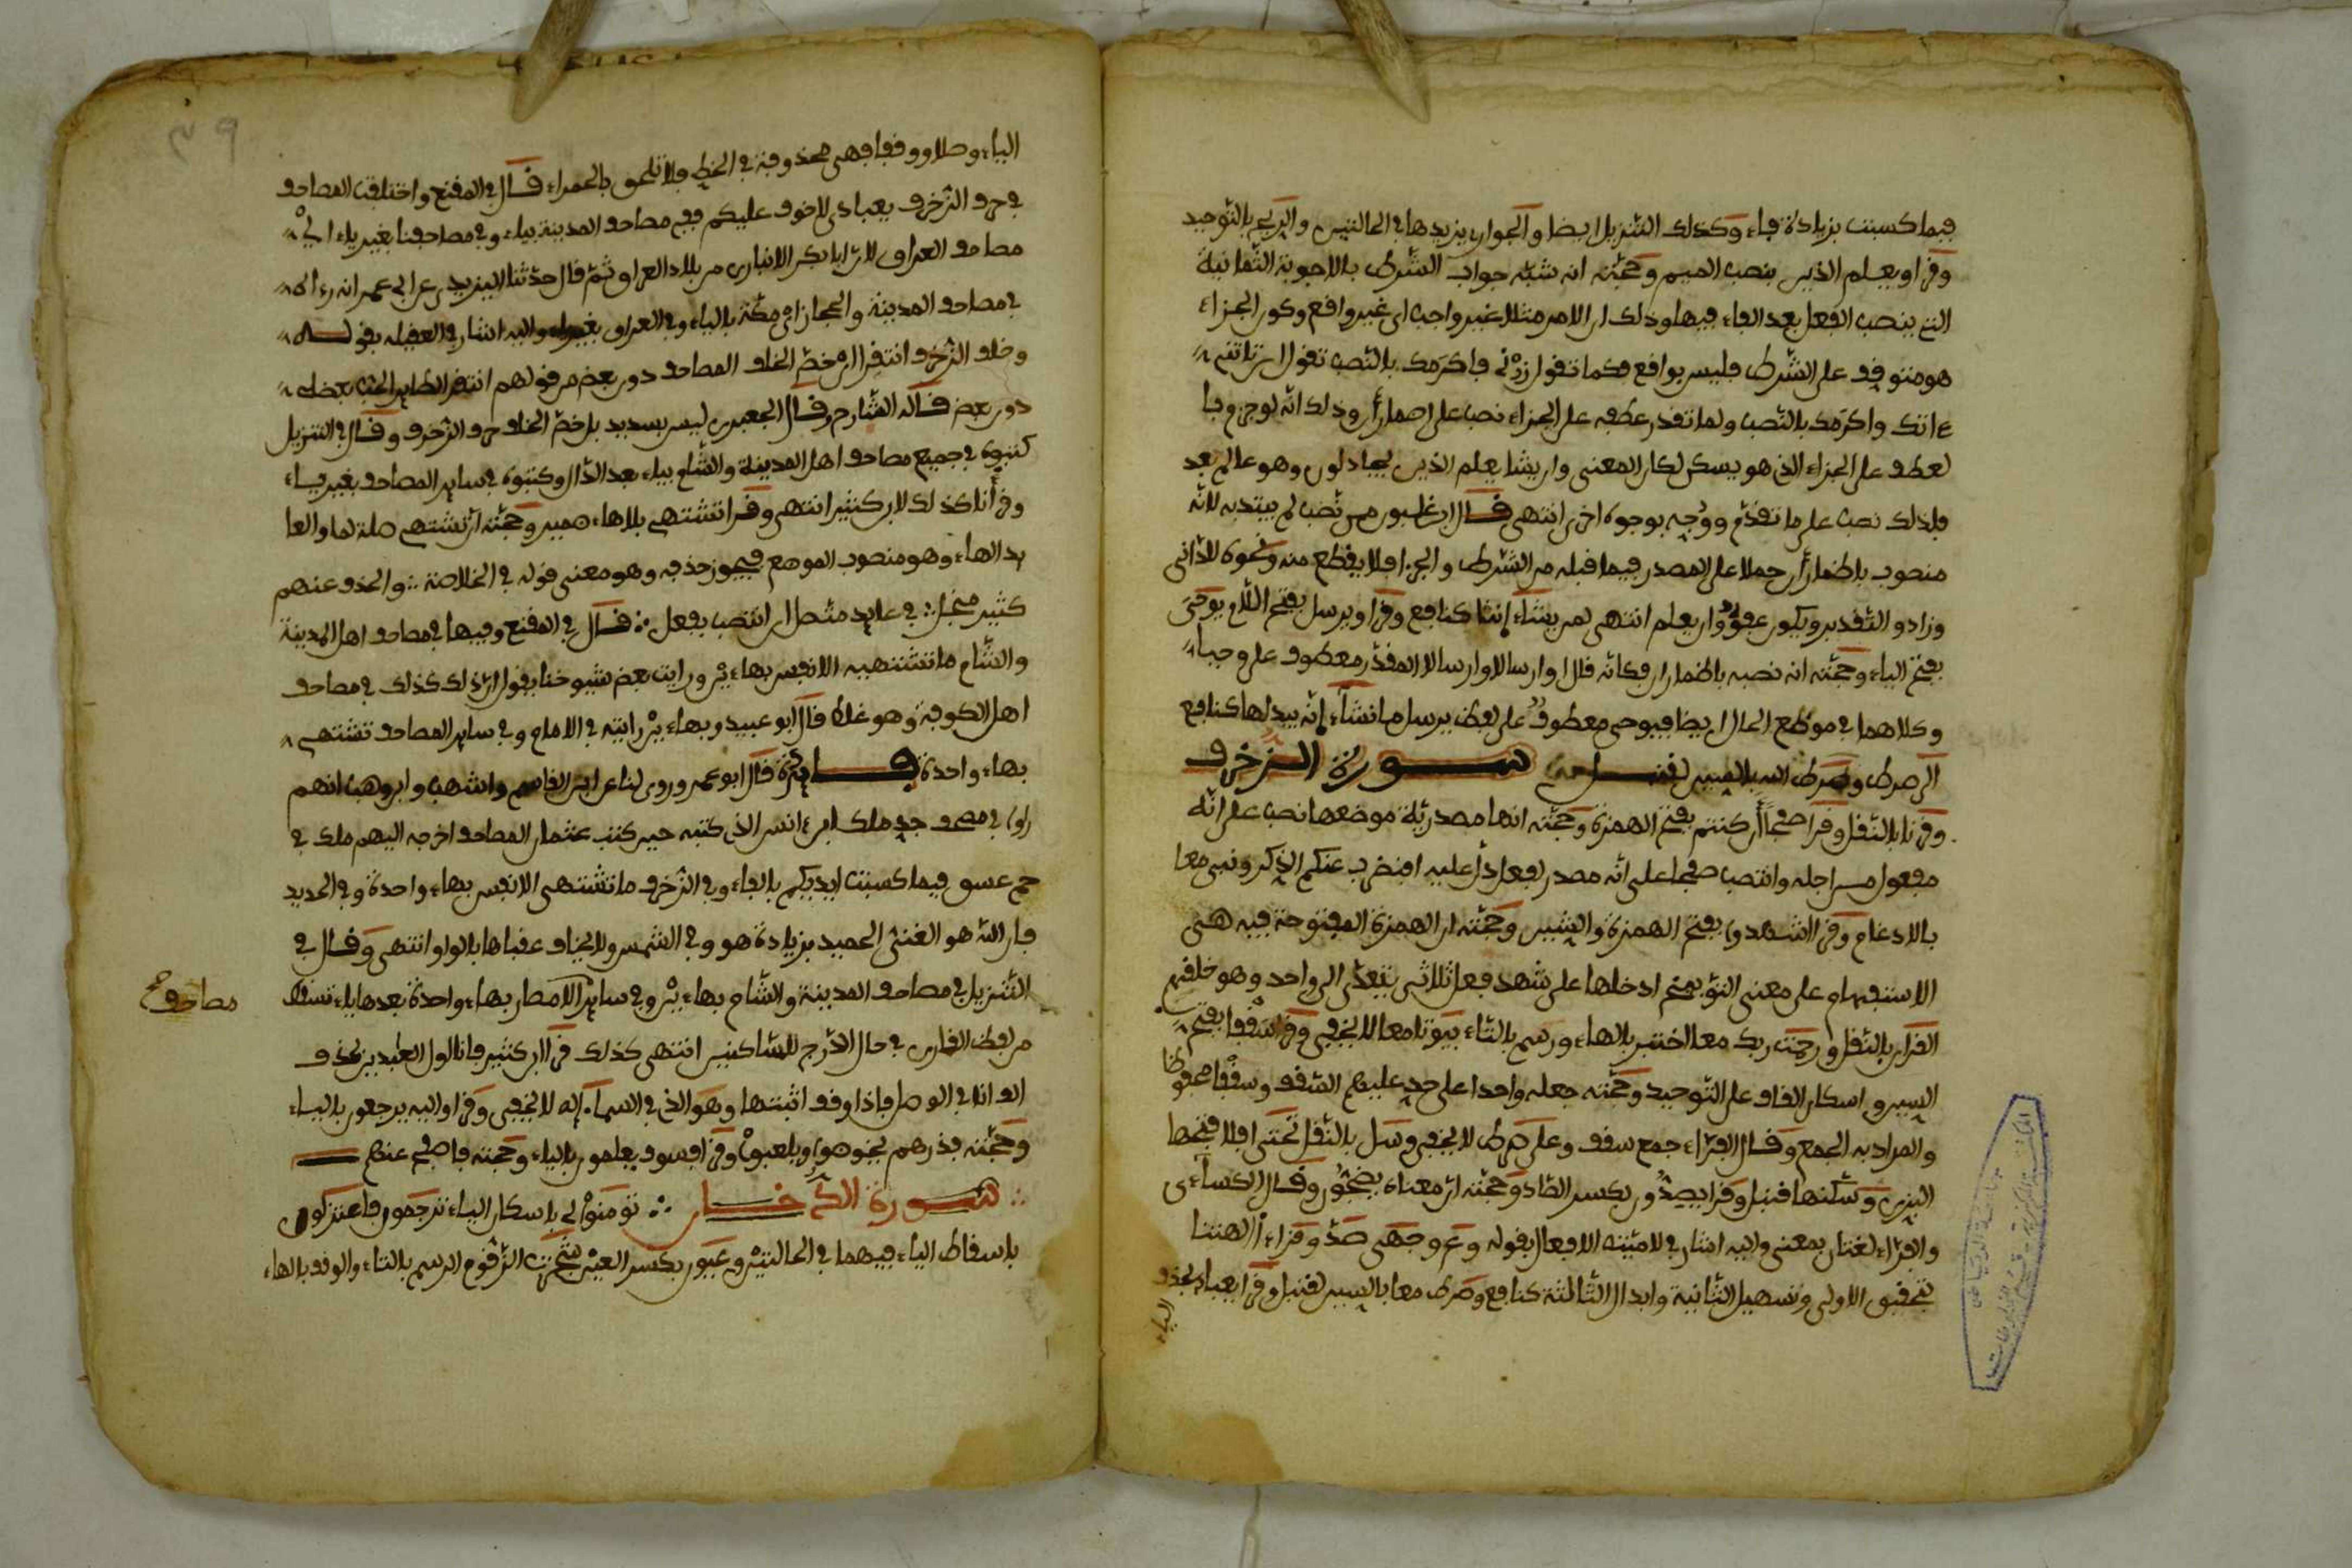 فيما كسبت بزيادة فاء وكذلك التنزيل ايضا والجوار يزيدها في الحالتين والريح بالتوحيد
وقرا ويعلم الذين بنصب الميم وحجته انه شبه جواب الشرط بالاجوبة الثمانية
التي ينصب الفعل بعد الفاء فيها وذلك ان الامر مثلا غير واجب اي غير واقع وكون الجزاء
هو متوقف على الشرط فليس بواقع فكما تقول زرني فاكرمك بالنصب تقول ان تاتني
ءاتك واكرمك بالنصب ولما تقدر عطفه على الجزاء نصب على اضمار أن وذلك انه لو جزم وبا
لعطف على الجزاء الذي هو يسكن لكان المعنى وان يشا يعلم الذين يجادلون وهو عالم بعد
فلذلك نصب على ما تقدم ووجه بوجوه اخرى انتهى قال ابن غلبون من نصب لم يبتد به لانه
منصوب باضمار أن حملا على المصدر فيما قبله من الشرط والجزا فلا يقطع منه ونحوه للداني
وزاد والتقدير ويكون عفو وان يعلم انتهى لمن يشاء إناثا كنافع وقرا ويرسل بفتح اللام يوحي
بفتح الياء وحجته انه نصبه باضمار ان فكانه قال او ارسالا وارسالا المقدر معطوف على وحيا
وكلاهما في موضع الحال ايضا فيوحي معطوف على لفظ يرسل ما نشاء إنه يبدلها كنافع
الى صرط وصرط الله بالسين لقنبل سورة الزخرف
وقرنا بالنقل وقرا صفحا أن كنتم بفتح الهمزة وحجته انها مصدرية موضعها نصب على انه
مفعول من اجله وانتصب صفحا على انه مصدر لفعل دل عليه افنضرب عنكم الذكر ونبي معا
بالادغام وقرا اشهدوا بفتح الهمزة والشين وحجته ان الهمزة المفتوحة فيه هي
الاستفهام على معنى التوبيخ ادخلها على شهد فعل ثلاثي يتعدى الى واحد وهو خلقهم
القران بالنقل ورحمت ربك معا اختير بالهاء ورسم بالتاء بيوتا معا لا يخفى وقرا سقفا بفتح
السين واسكان القاف على التوحيد وحجته جعله واحدا على حد عليهم السقف وسقفا محفوظا
والمراد به الجمع وقال الفراء جمع سقف وعلى صرط لا يخفى وسل بالنقل تحتي افلا فتحها
البزي وسكنها قنبل وقرا يصدون بكسر الصاد وحجته ان معناه يضجون وقال الكساءي
والفراء لغتان بمعنى واليه اشار في لامية الافعال بقوله وعم وجهي صد وقراء أالهتنا
بتحقيق الاولى وتسهيل الثانية وابدال الثالثة كنافع وصرط معا بالسين لقنبل وقرا يعباد بحذف
الياء
٣٩
الياء وصلا ووقفا فهي محذوفة في الخط فلا تلحق بالحمراء قال في المقنع واختلفت المصاحف
في حرف الزخرف يعبادي لا خوف عليكم ففي مصاحف المدينة بياء وفي مصاحفنا بغير ياء اي
مصاحف العراق لان ابا بكر الانباري من بلاد العراق ثم قال حدثنا اليزيدي عن ابي عمر انه رءاه
في مصاحف المدينة والحجاز اي مكة بالياء وفي العراق بغير ياء واليه اشار في العقيلة بقوله
وخلف الزخرف انتقرا اي خص الخلف المصاحف دون بعض من قولهم انتقر الطاير الحب بعضه
دون بعض قاله الشارح وقال الجعبري ليس بسديد بل خص الخلف حرف الزخرف وقال في التنزيل
كتبوه في جميع مصاحف اهل المدينة والشام بياء بعد الدال وكتبوه في ساير المصاحف بغير ياء
وقرأنا كذلك لابن كثير انتهى وقرا تشتهي بلا هاء ضمير وحجته ان تشتهي صلة لما والعا
يد الهاء وهو منصوب الموضع فيجوز حذفه وهو معنى قوله في الخلاصة والحذف عنهم
كثير منجل في عايد متصل ان انتصب بفعل قال في المقنع وفيها في مصاحف اهل المدينة
والشام ما تشتهيه الانفس بهاءين ورايت بعض شيوخنا يقول ان ذلك كذلك في مصاحف
اهل الكوفة وهو غلط قال ابو عبيد وبهاءين رايته في الامام وفي ساير المصاحف تشتهي
بهاء واحدة فايدة قال ابو عمرو وروى لنا عن ابن القاسم واشهب وابن وهب انهم
راوا في مصحف جد ملك ابن انس الذي كتبه حين كتب عثمان المصاحف اخرجه اليهم ملك في
حم عسق فيما كسبت ايديكم بالفاء وفي الزخرف ما تشتهي الانفس بهاء واحدة وفي الحديد
فان الله هو الغني الحميد بزيادة هو وفي الشمس ولا يخاف عقباها بالواو انتهى وقال في
التنزيل في مصاحف المدينة والشام بهاءين وفي ساير الامصار بهاء واحدة بعدها ياء تسقط
مصاحف صح
من لفظ القارئ في حال الدرج للساكنين انتهى كذلك قرا ابن كثير فانا اول العبدين بحذف
الف انا في الوصل فاذا وقف اثبتها وهو الذي في السماء إله لا يخفى وقرا واليه يرجعون بالياء
وحجته فذرهم يخوضوا ويلعبوا وقرا فسوف يعلمون بالياء وحجته فاصفح عنهم
سورة الدخان تومنوا لي باسكان الياء ترجمون فاعتزلون
باسقاط الياء فيهما في الحالتين وعيون بكسر العين شجرت الزقوم الرسم بالتاء والوقف بالهاء